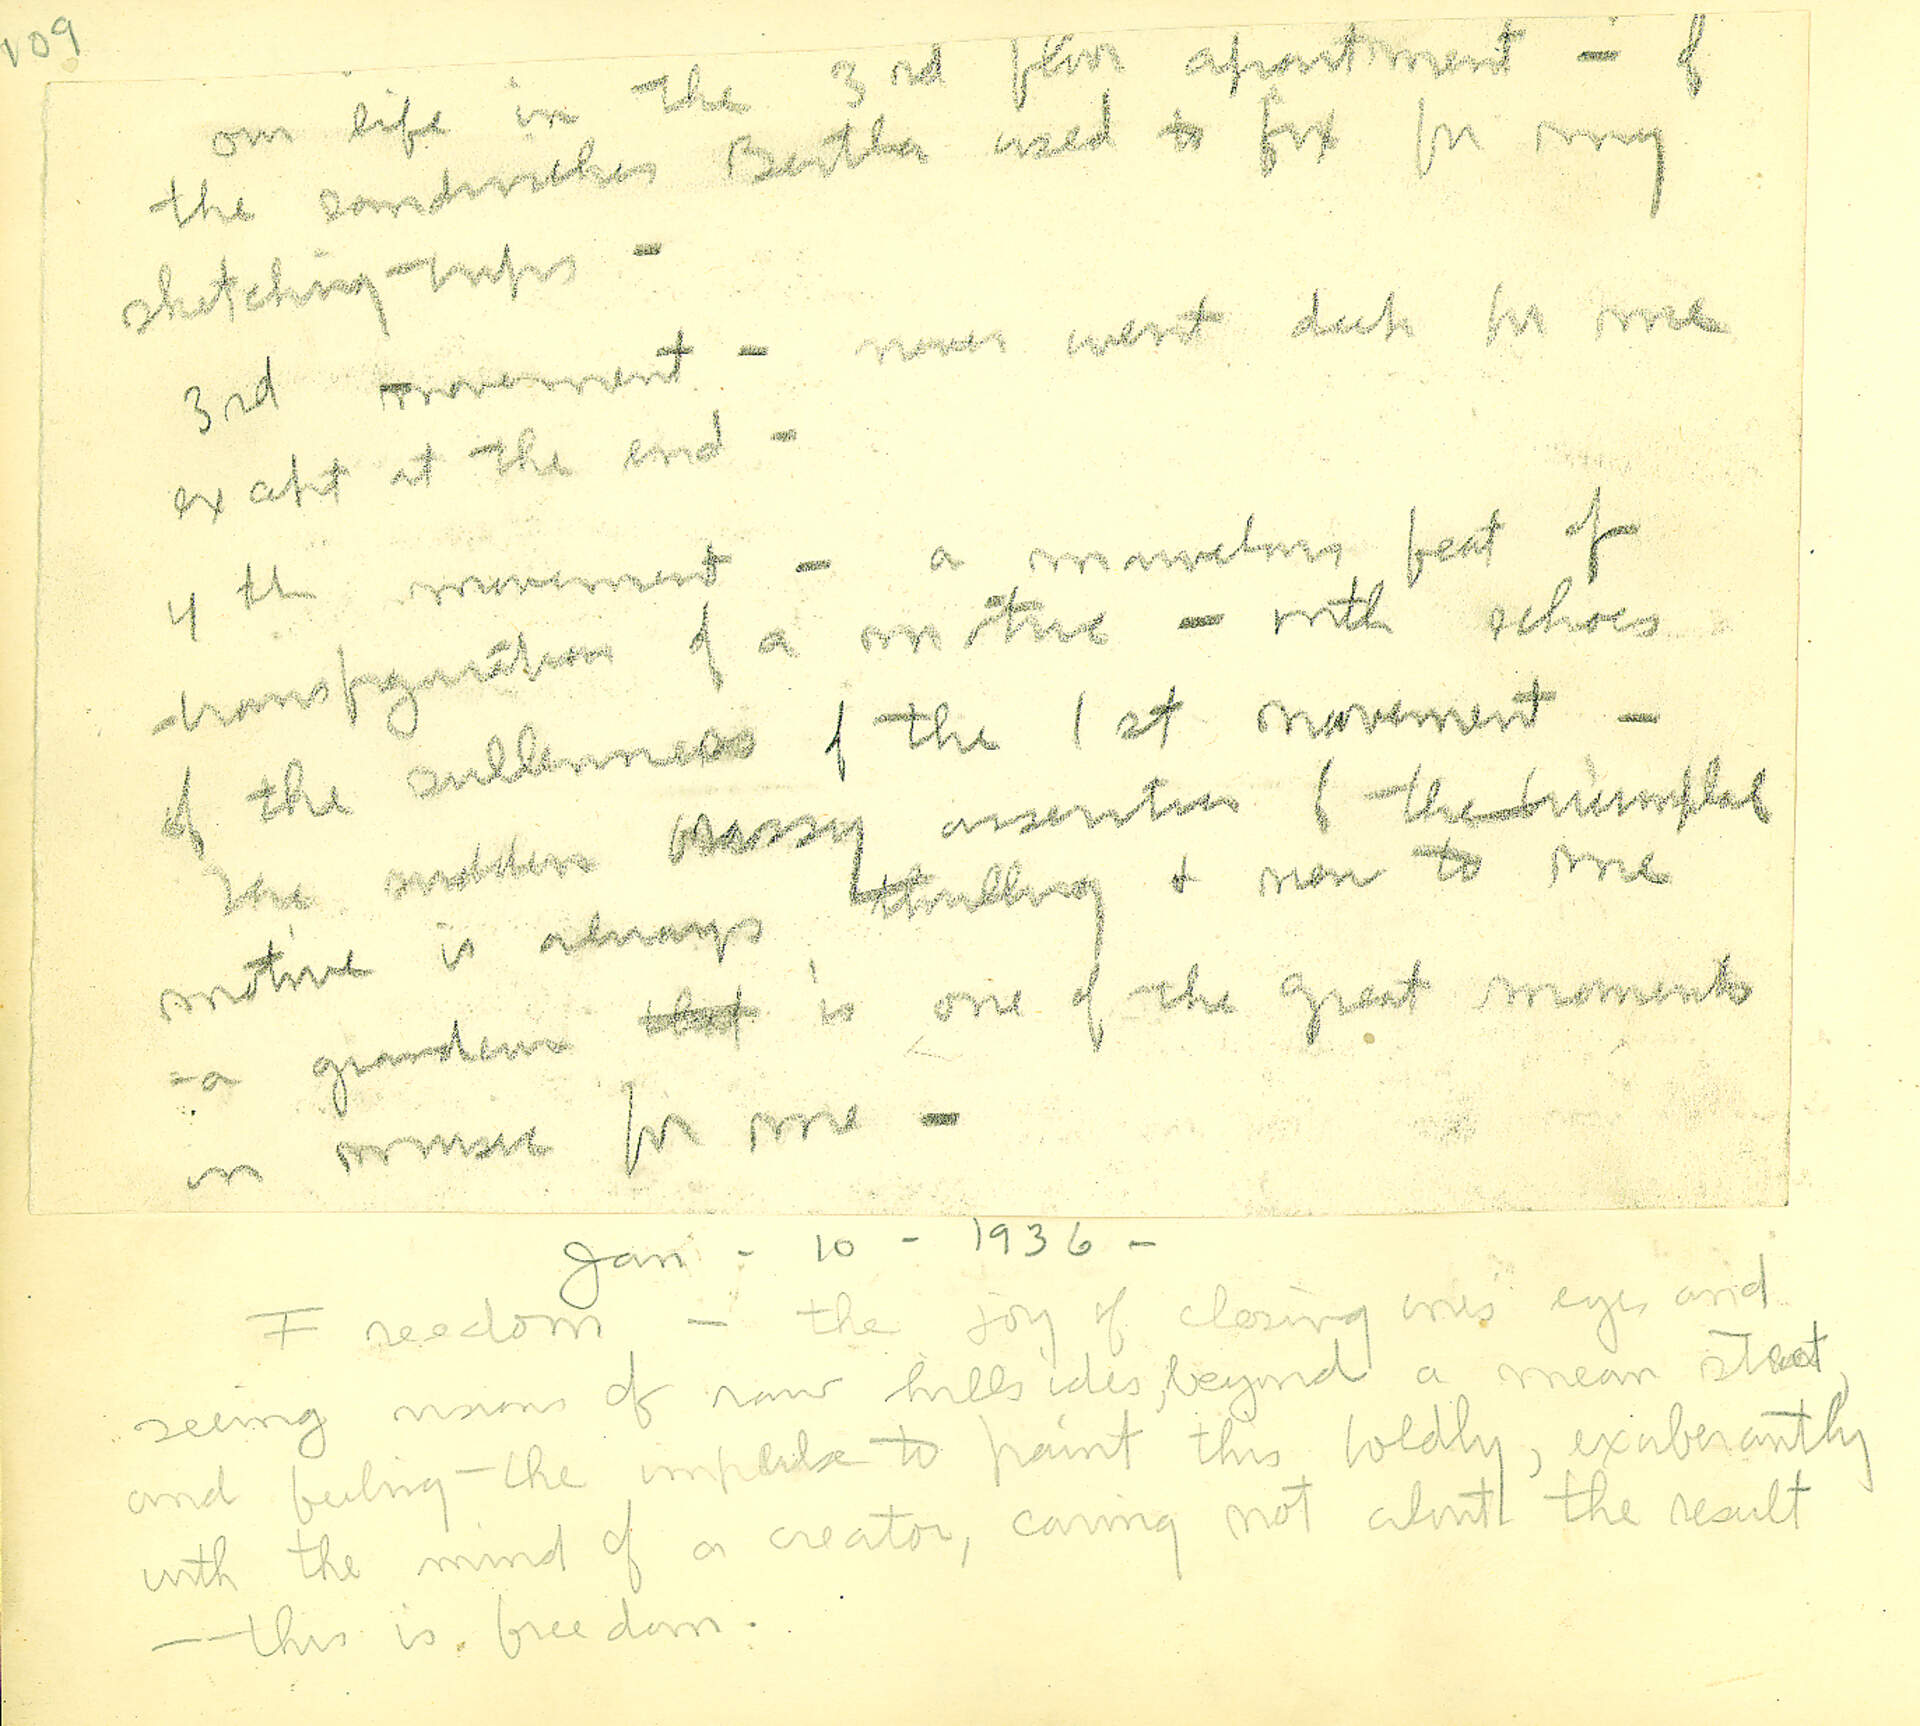 109
our life in the 3rd floor apartment – of
the sandwiches Bertha used to fix for my
sketching-trips –
3rd movement – never went deep for me
except at the end –
4th movement – a marvelous feat of
transfiguration of a motive – with echoes
of the sullenness of the 1st movement –
The sudden brassy assertion of the triumphal
motive is always thrilling & new to me
– a grandeur that is one of the great moments
in music for me –
Jan - 10 - 1936 -
Freedom – the joy of closing one's eyes and
seeing visions of raw hillsides, beyond a mean street,
and feeling the impulse to paint this boldly, exuberantly
with the mind of a creator, caring not about the result
— this is freedom.